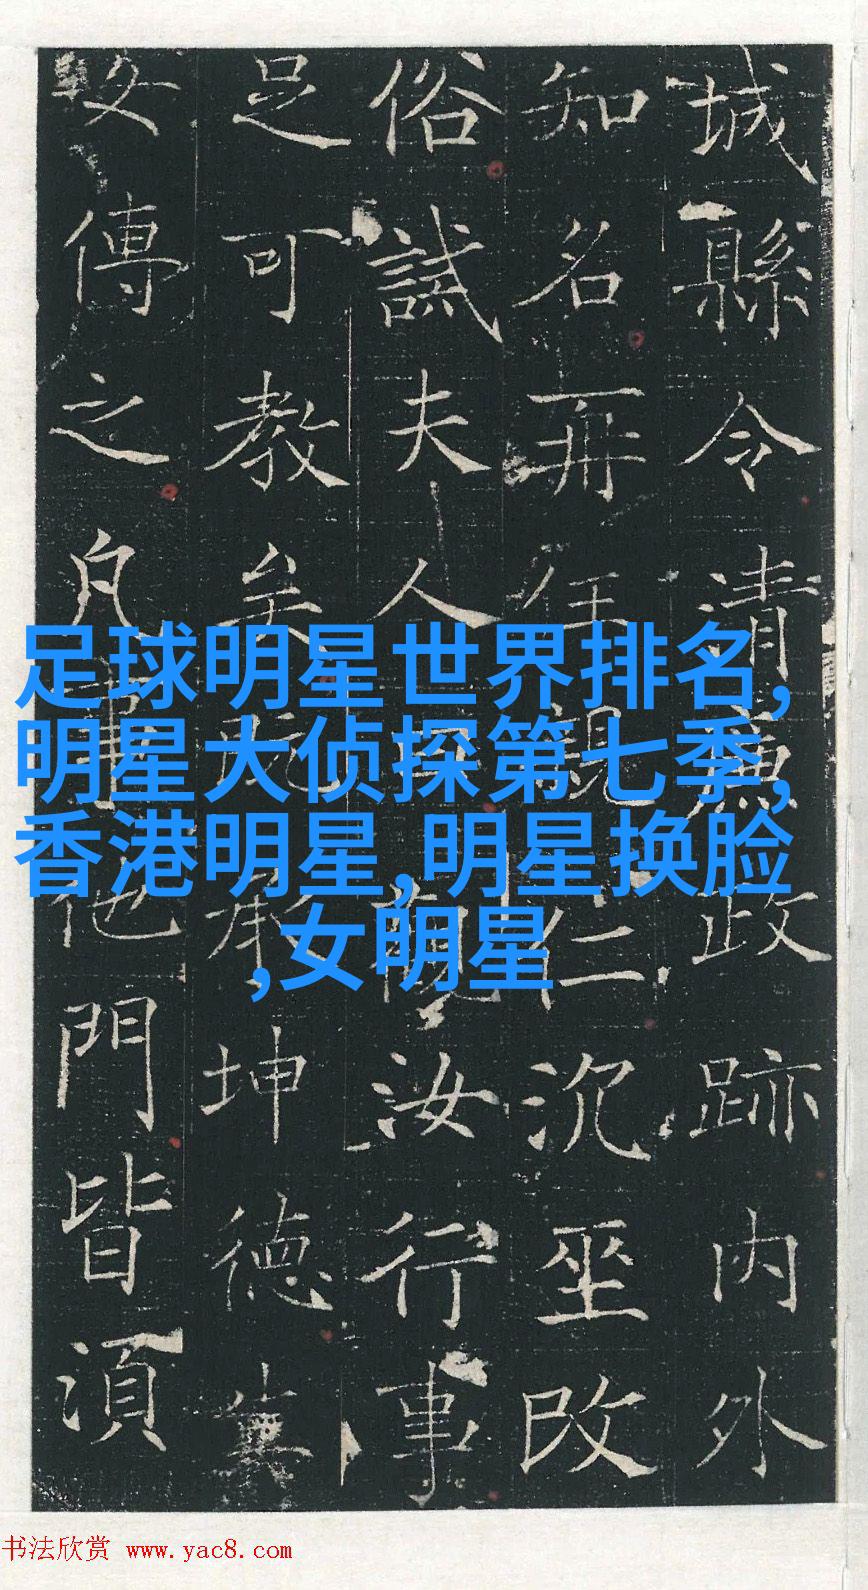 城縣令清廉政跡内外
知名再任親仁沉坐改
俗誡夫人觀汝行事
足可教矣既承坤德
傳之凡事他門皆須
足球明星世界排名,
明星大侦探第七季,
香港明星,明星换脸
,女明星
书法欣赏 www.yac8.com